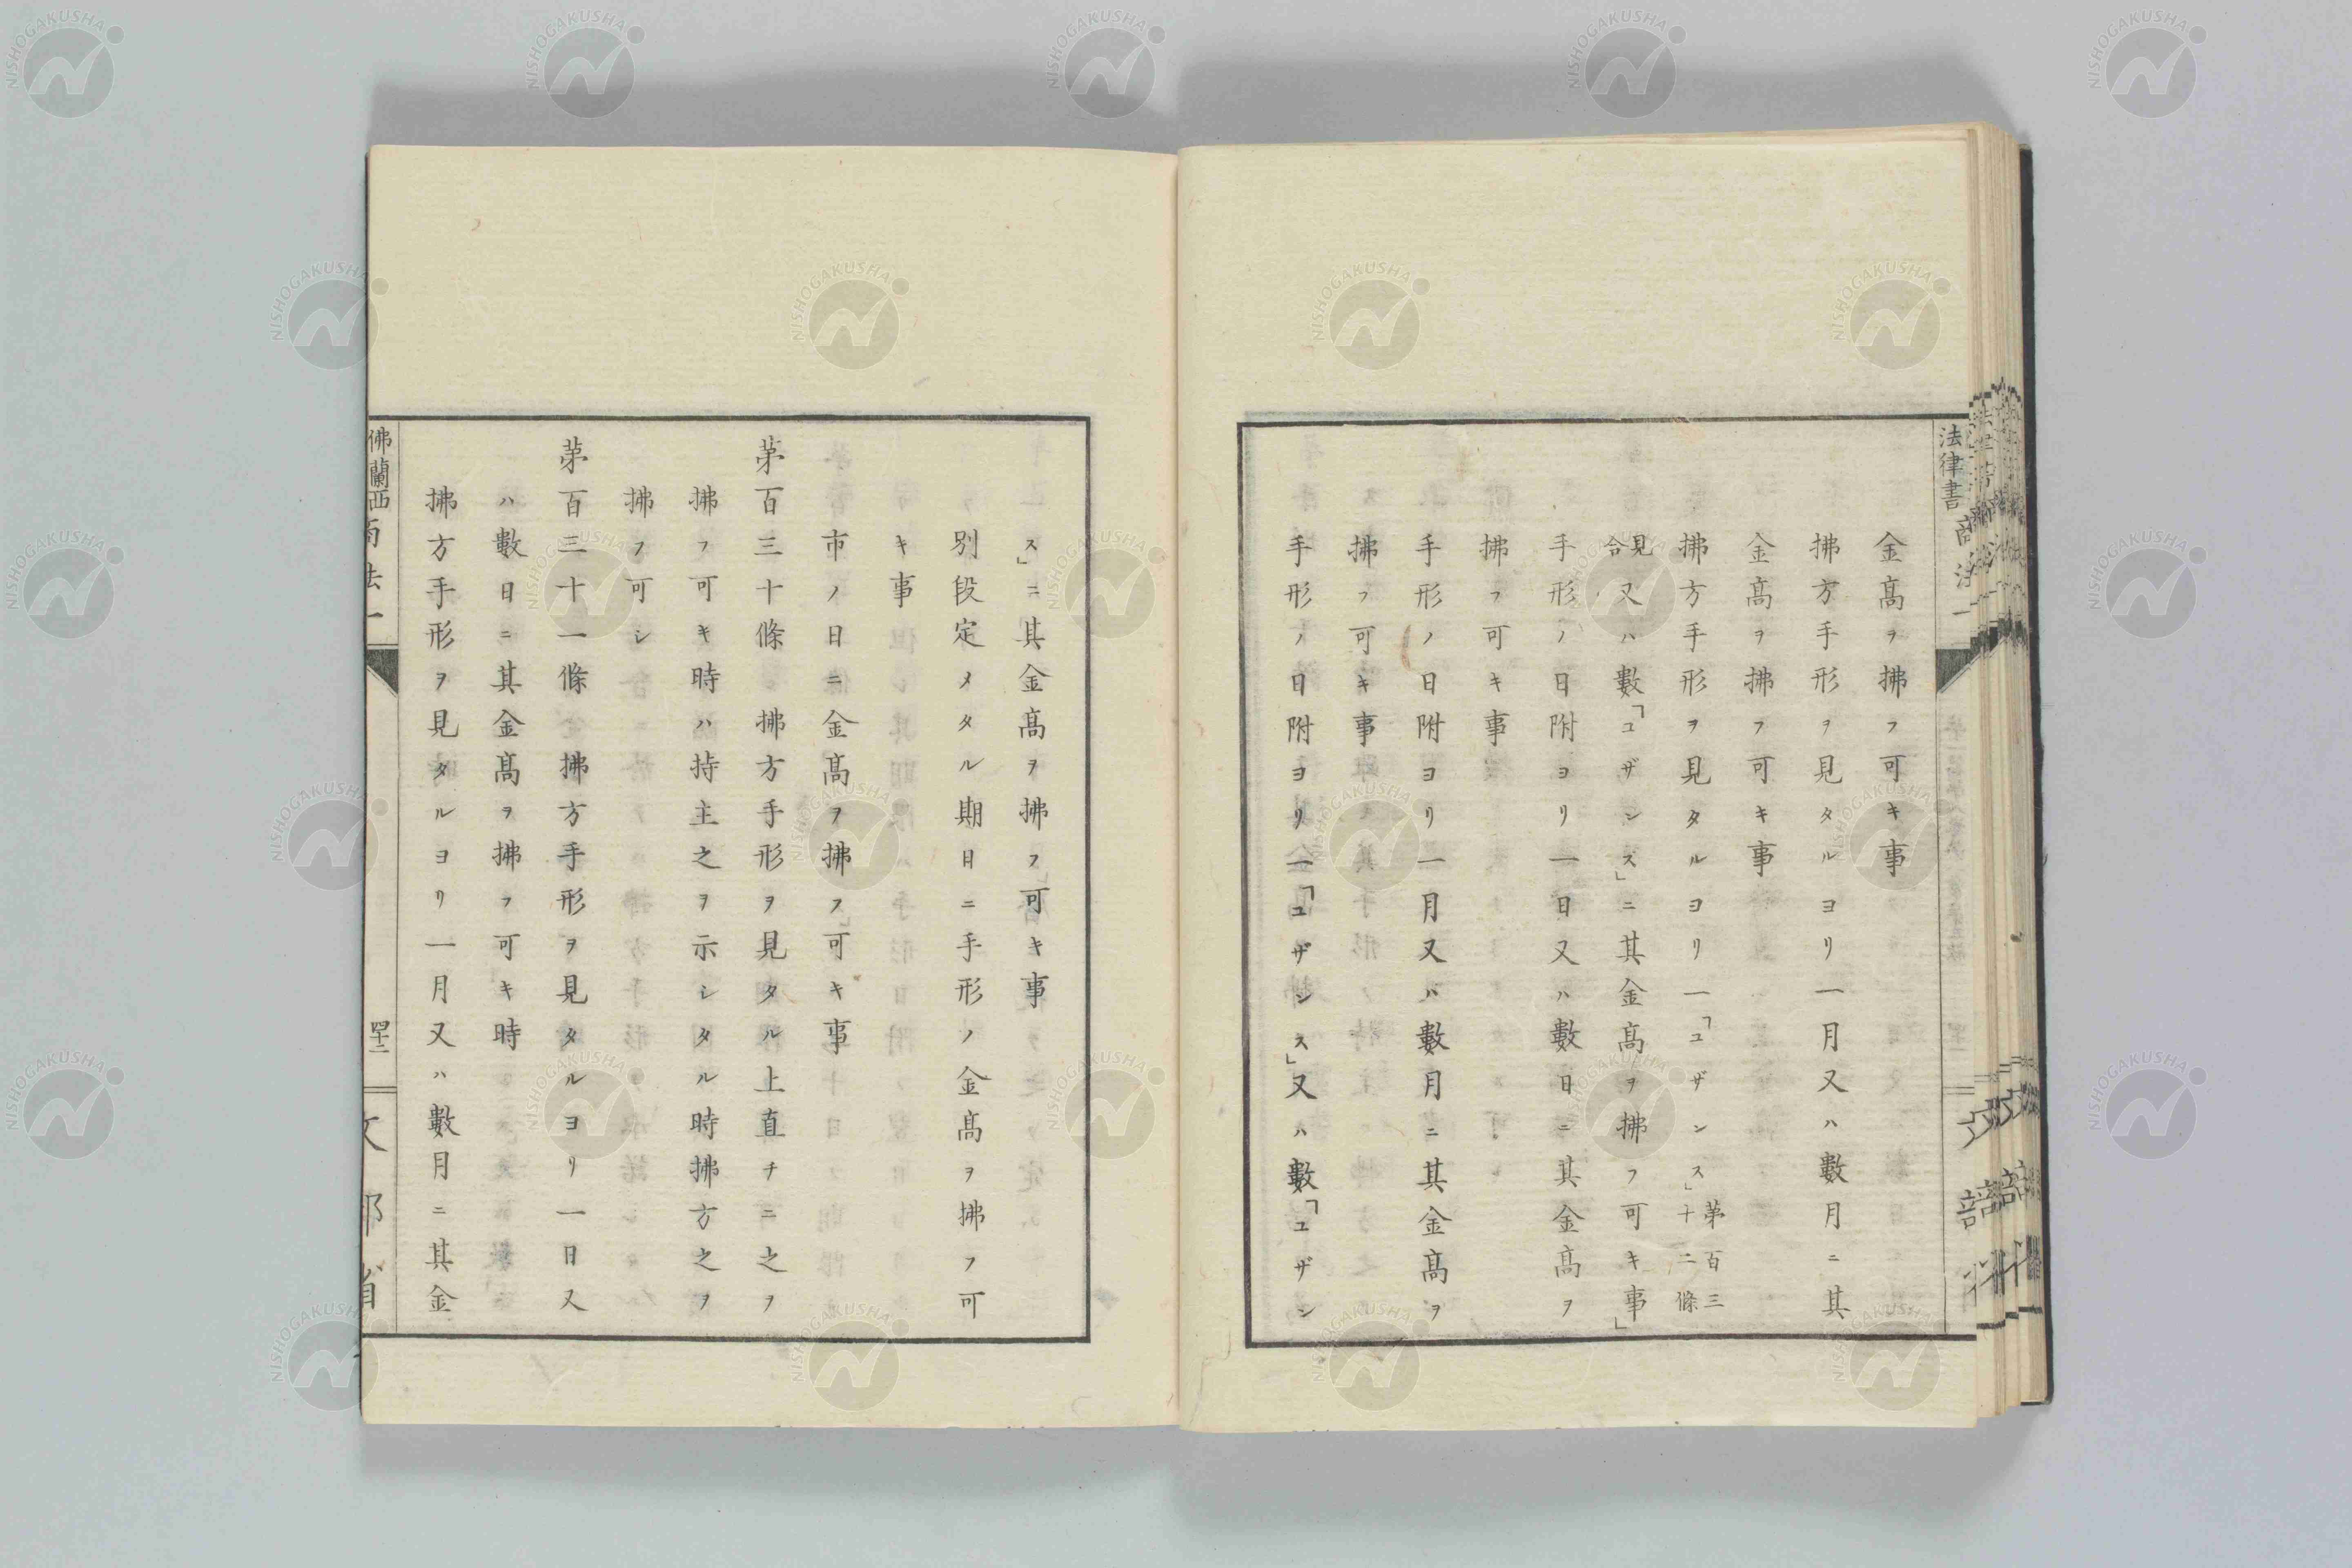 金髙ヲ拂フ可キ事
拂方手形ヲ見タルヨリ一月又ハ數月ニ其
金髙ヲ拂フ可キ事
拂方手形ヲ見タルヨリ一「ユザンス」第百三十二條
見合又ハ數「ユザンス」ニ其金髙ヲ拂フ可キ事」
手形ノ日附ヨリ一日又ハ數日ニ其金髙ヲ
拂フ可キ事
手形ノ日附ヨリ一月又ハ數月ニ其金髙ヲ
拂フ可キ事
手形ノ日附ヨリ一「ユザンス」又ハ數「ユザン
ス」ニ其金髙ヲ拂フ可キ事
別段定メタル期日ニ手形ノ金髙ヲ拂フ可
キ事
市ノ日ニ金髙ヲ拂フ可キ事
第百三十條 拂方手形ヲ見タル上直チニ之ヲ
拂フ可キ時ハ持主之ヲ示シタル時拂方之ヲ
拂フ可シ
第百三十一條 拂方手形ヲ見タルヨリ一日又
ハ數日ニ其金髙ヲ拂フ可キ時
拂方手形ヲ見タルヨリ一月又ハ數月ニ其金
法律書 商法一
佛蘭西商法一
四十二
文部省
NISHOGAKUSHA